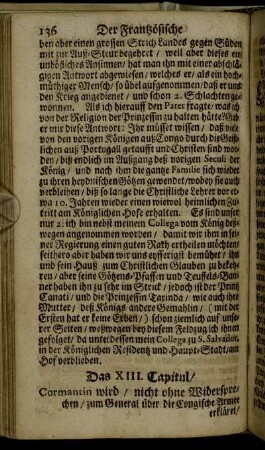 136 Der Frantzösische
ben aber einen grossen Strich Landes gegen Süden
mit zur Auß-Steur begehret / weil aber dieses ein
unhöfliches Ansinnen / hat man ihn mit einer abschlä-
gigen Antwort abgewiesen / welches er / als ein hoch-
müthiger Mensch / so übel aufgenommen / daß er uns
den Krieg angedienet / und schon 2. Schlachten ge-
wonnen. Als ich hierauff den Pater fragte / was ich
von der Religion der Prinzessin zu halten hätte? Gab
er mir diese Antwort: Ihr müsset wissen / daß viele
von den vorigen Königen auß Congo durch die Geist-
lichen auß Portugall getaufft und Christen sind wor-
den / biß endlich im Außgang deß vorigen Seculi der
König / und nach ihm die gantze Familie sich wieder
zu ihren heydnischen Götzen gewendet / wobey sie auch
verblieben / biß so lange die Christliche Lehrer vor et-
wa 10. Jahren wieder einen wiewol heimlichen Zu-
tritt am Königlichen Hofe erhalten. Es sind unser
nur 2: ich bin nebst meinem Collega vom König deß-
wegen angenommen worden / damit wir ihm in sei-
ner Regierung einen guten Rath ertheilen möchten /
seithero aber haben wir uns eyfferigst bemühet / ihn
und sein Hauß zum Christlichen Glauben zu bekeh-
ren / aber seine Götzens-Pfaffen und Teuffels-Ban-
ner haben ihn zu sehr im Strick / jedoch ist der Printz
Canati / und die Prinzessin Taxinda / wie auch ihre
Mutter / deß Königs andere Gemahlin / (mit der
Ersten hat er keine Erben /) schon ziemlich auf uns-
rer Seiten / weßwegen bey diesem Feldzug ich ihnen
gefolget / da unterdessen mein Collega zu S. Salvador,
in der Königlichen Residentz und Haupt-Stadt / am
Hof verblieben.
Das XIII. Capitul /
Cormantin wird / nicht ohne Widerspre-
chen / zum General über die Congische Armee
erkläret /